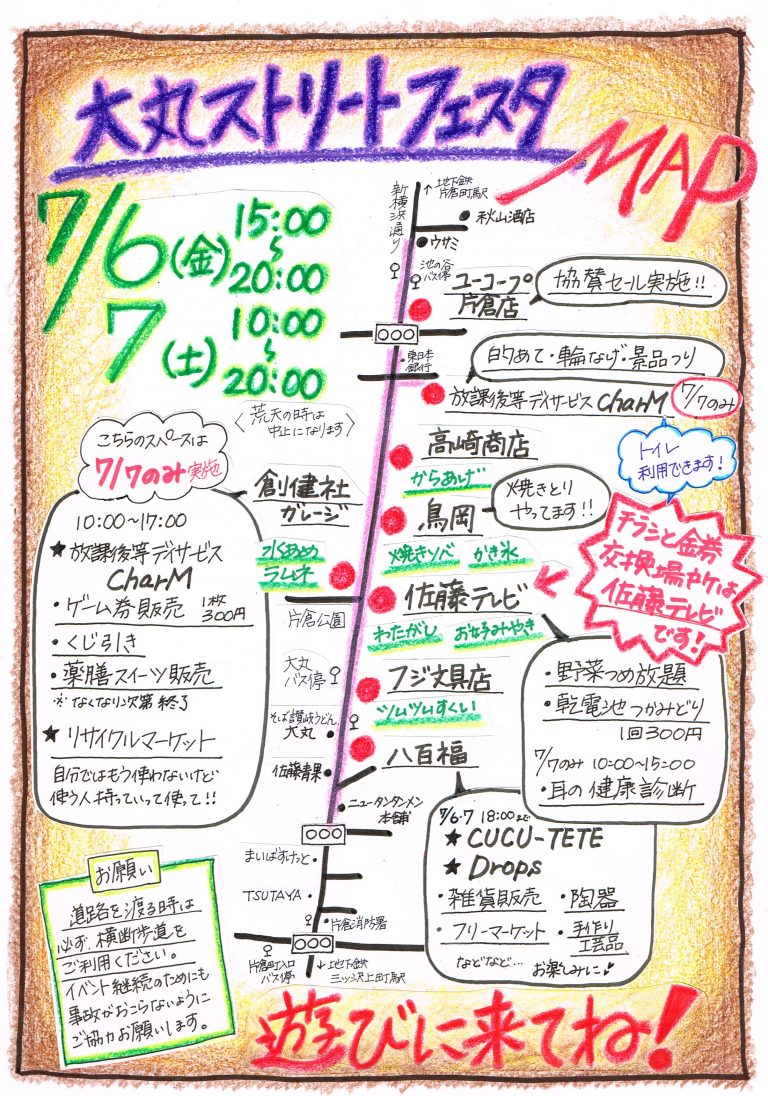 大丸ストリートフェスタ
MAP
7/6(金) 15:00
〜
20:00
7(土) 10:00
〜
20:00
〈荒天の時は
中止になります〉
新横浜通り
↑地下鉄
片倉町駅
秋山酒店
ウサミ
池の谷
バス停
ユーコープ
片倉店
協賛セール実施!!
東日本
銀行
的あて・輪なげ・景品つり
放課後等デイサービス CharM
7/7のみ
トイレ
利用できます!
高崎商店
からあげ
創健社
ガレージ
水あめ
ラムネ
鳥岡
焼きとり
やってます!!
焼きソバ かき氷
チラシと金券
交換場所は
佐藤テレビ
です!
佐藤テレビ
わたがし お好みやき
片倉公園
大丸
バス停
フジ文具店
ツムツムすくい
そば讃岐うどん
大丸
八百福
佐藤青果
ニュータンタンメン
本舗
まいばすけっと
TSUTAYA
片倉消防署
片倉町入口
バス停
↓地下鉄
三ッ沢上町駅
こちらのスペースは
7/7のみ実施
10:00〜17:00
★放課後等デイサービス
CharM
・ゲーム券販売 1枚
300円
・くじ引き
・薬膳スイーツ販売
※なくなり次第終了
★リサイクルマーケット
自分ではもう使わないけど
使う人持っていって使って!!
・野菜つめ放題
・乾電池つかみどり
1回300円
7/7のみ 10:00〜15:00
・耳の健康診断
7/6・7 18:00まで
★CUCU-TETE
★Drops
・雑貨販売 ・陶器
・フリーマーケット ・手作り
工芸品
などなど… お楽しみに♪
お願い
道路を渡る時は
必ず、横断歩道を
ご利用ください。
イベント継続のためにも
事故がおこらないように
ご協力お願いします。
遊びに来てね!